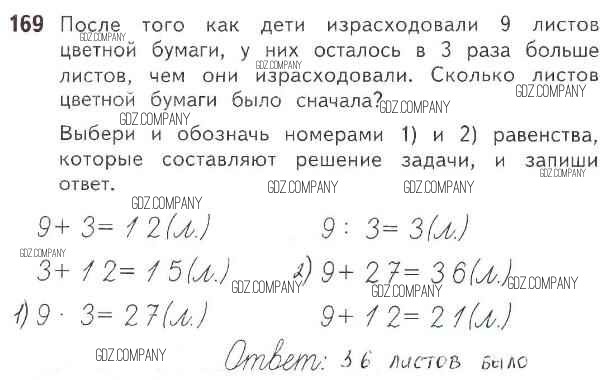 169 После того как дети израсходовали 9 листов
GDZ.COMPANY GDZ.COMPANY
цветной бумаги, у них осталось в 3 раза больше
GDZ.COMPANY
листов, чем они израсходовали. Сколько листов
GDZ.COMPANY GDZ.COMPANY
цветной бумаги было сначала?
GDZ.COMPANY GDZ.COMPANY
Выбери и обозначь номерами 1) и 2) равенства,
которые составляют решение задачи, и запиши
GDZ.COMPANY
ответ.
GDZ.COMPANY GDZ.COMPANY
GDZ.COMPANY
9 + 3 = 12 (л.) 9 : 3 = 3 (л.)
GDZ.COMPANY GDZ.COMPANY
3 + 12 = 15 (л.) 2) 9 + 27 = 36 (л.)
GDZ.COMPANY GDZ.COMPANY GDZ.COMPANY
1) 9 · 3 = 27 (л.) 9 + 12 = 21 (л.)
GDZ.COMPANY GDZ.COMPANY
Ответ: 36 листов было